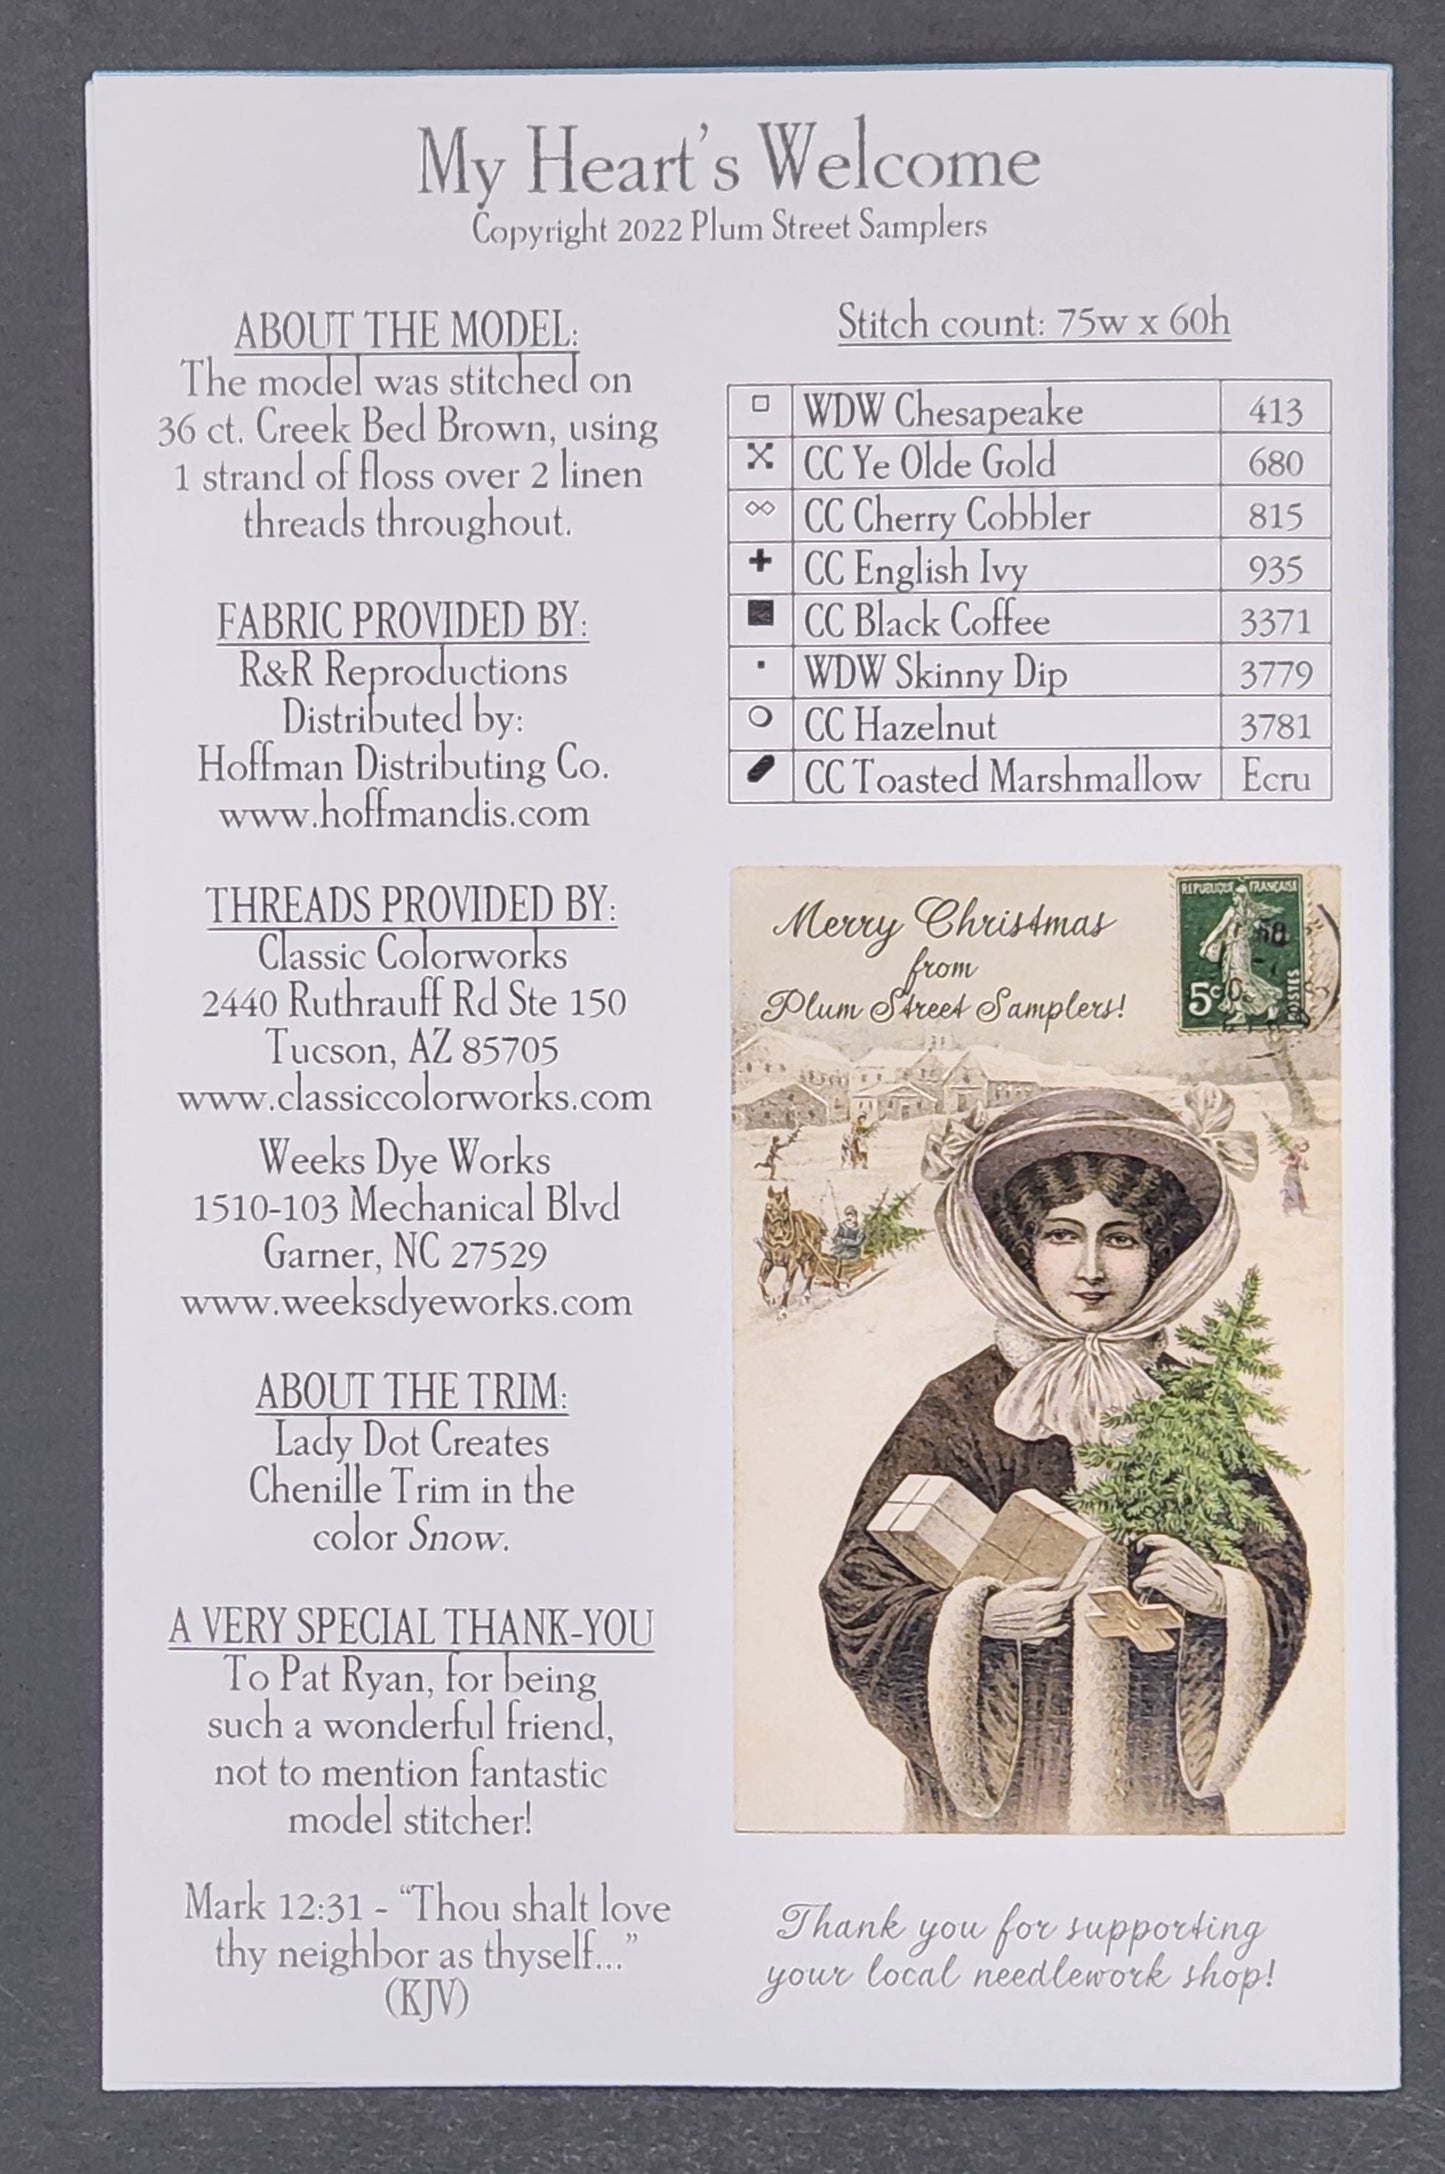 My Heart's Welcome
Copyright 2022 Plum Street Samplers
ABOUT THE MODEL:
The model was stitched on
36 ct. Creek Bed Brown, using
1 strand of floss over 2 linen
threads throughout.
FABRIC PROVIDED BY:
R&R Reproductions
Distributed by:
Hoffman Distributing Co.
www.hoffmandis.com
THREADS PROVIDED BY:
Classic Colorworks
2440 Ruthrauff Rd Ste 150
Tucson, AZ 85705
www.classiccolorworks.com
Weeks Dye Works
1510-103 Mechanical Blvd
Garner, NC 27529
www.weeksdyeworks.com
ABOUT THE TRIM:
Lady Dot Creates
Chenille Trim in the
color Snow.
A VERY SPECIAL THANK-YOU
To Pat Ryan, for being
such a wonderful friend,
not to mention fantastic
model stitcher!
Mark 12:31 - "Thou shalt love
thy neighbor as thyself..."
(KJV)
Stitch count: 75w x 60h
WDW Chesapeake 413
CC Ye Olde Gold 680
CC Cherry Cobbler 815
CC English Ivy 935
CC Black Coffee 3371
WDW Skinny Dip 3779
CC Hazelnut 3781
CC Toasted Marshmallow Ecru
Merry Christmas
from
Plum Street Samplers!
REPUBLIQUE FRANÇAISE
5c
POSTES
Thank you for supporting
your local needlework shop!